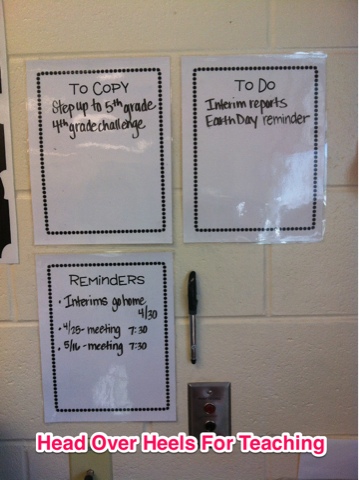 TO COPY
Step up to 5th grade
4th grade challenge
TO DO
Interim reports
Earth Day reminder
REMINDERS
• Interims go home
4/30
• 4/25 - meeting 7:30
• 5/16 - meeting 7:30
Head Over Heels For Teaching